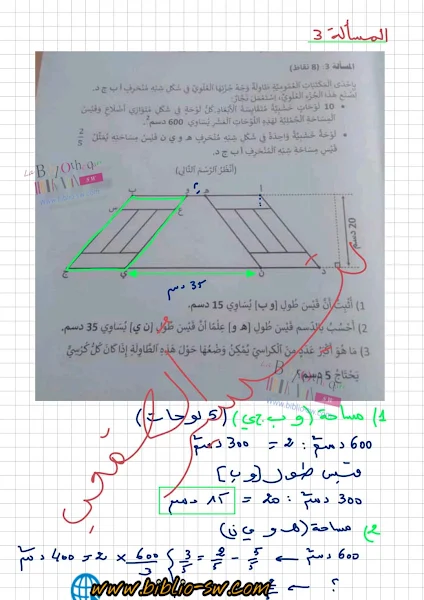 المسألة 3
المسألة 3- (8 نقاط)
بإحدى المكتبات العمومية طاولة وجه جزئها العلوي في شكل شبه منحرف ا ب ج د.
لصنع هذا الجزء العلوي، استعمل نجّار:
10 لوحات خشبية متقايسة الأبعاد. كل لوحة في شكل متوازي أضلاع وقيس
المساحة الجملية لهذه اللوحات العشر يساوي 600 دسم².
لوحة خشبية واحدة في شكل شبه منحرف ه و ي ن قيس مساحته يمثّل 2/5
قيس مساحة شبه المنحرف ا ب ج د.
(أنظر الرسم التالي)
ب و ه ا
س ع
20 دسم
ج ي ن د
35 دسم
1) أثبت أن قيس طول [و ب] يساوي 15 دسم.
2) أحسب بالدسم قيس طول [ه و] علما أن قيس طول [ن ي] يساوي 35 دسم.
3) ما هو أكبر عدد من الكراسي يمكن وضعها حول هذه الطاولة إذا كان كل كرسي
يحتاج 5 دسم؟
1) مساحة (و ب ج ي) (5 لوحات)
600 دسم² : 2 = 300 دسم²
قيس طول [و ب]
300 دسم² : 20 = 15 دسم
2) مساحة (ه و ي ن)
600 دسم² ← 5/5 - 2/5 = 3/5 } 600/3 × 2 = 400 دسم²
؟ ←
www.biblio-sw.com